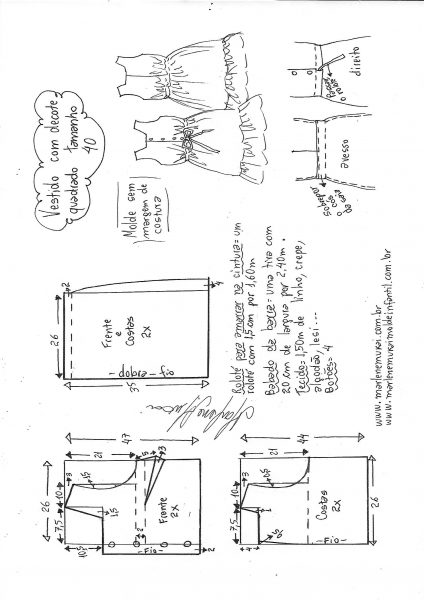 Vestido com decote
quadrado tamanho
40
Molde sem
margem de
costura
direito
avesso
26
2
4
35
Frente
e
Costas
2x
dobra
fio
Rolotê para amarrar na cintura = um
rolotê com 1,5cm por 1,60m
Babado da barra = uma tira com
20 cm de largura por 2,40m.
Tecido = 1,50m de linho, crepe,
algodão, lesi...
Botões = 4
www.marlenemukai.com.br
www.marlenemukaimoldeinfantil.com.br
47
21
5
3
26
10
7,5
3
1,5
2
Frente
2x
Fio
2
44
21
10
7,5
3
4
1
Costas
2x
Fio
26